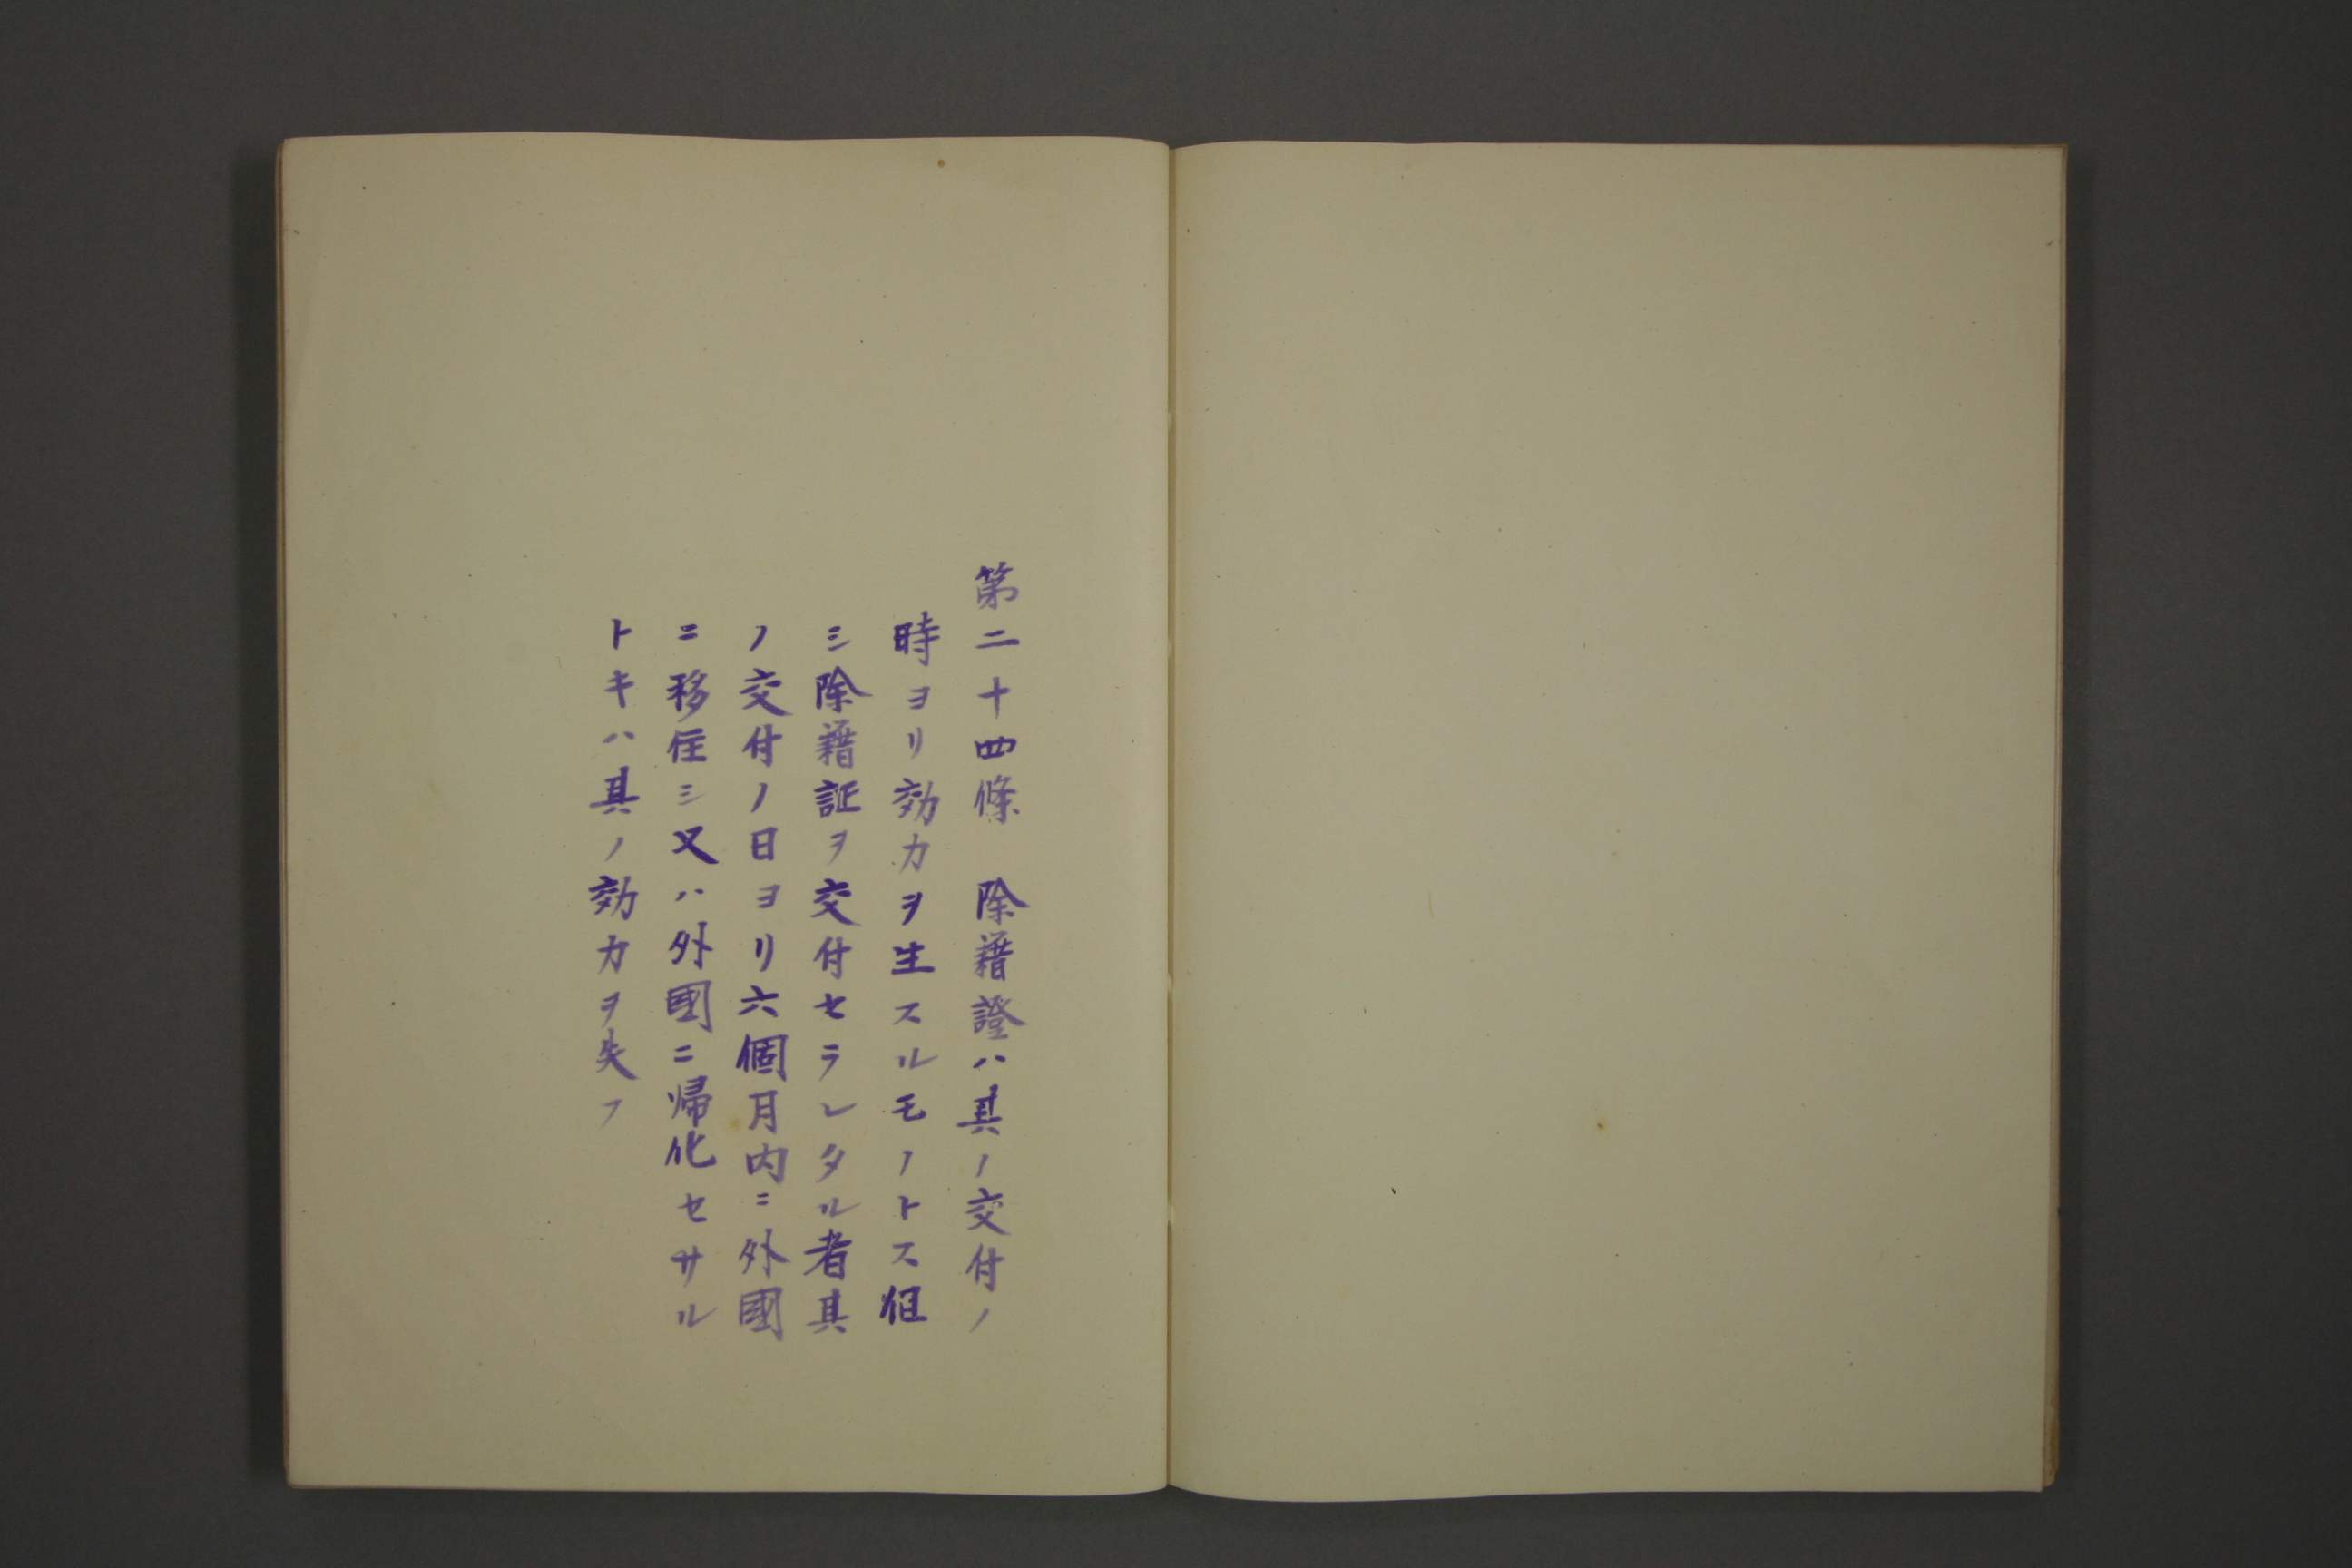 第二十四條　除籍證ハ其ノ交付ノ
時ヨリ効力ヲ生スルモノトス但
シ除籍証ヲ交付セラレタル者其
ノ交付ノ日ヨリ六個月内ニ外國
ニ移住シ又ハ外國ニ帰化セサル
トキハ其ノ効力ヲ失フ